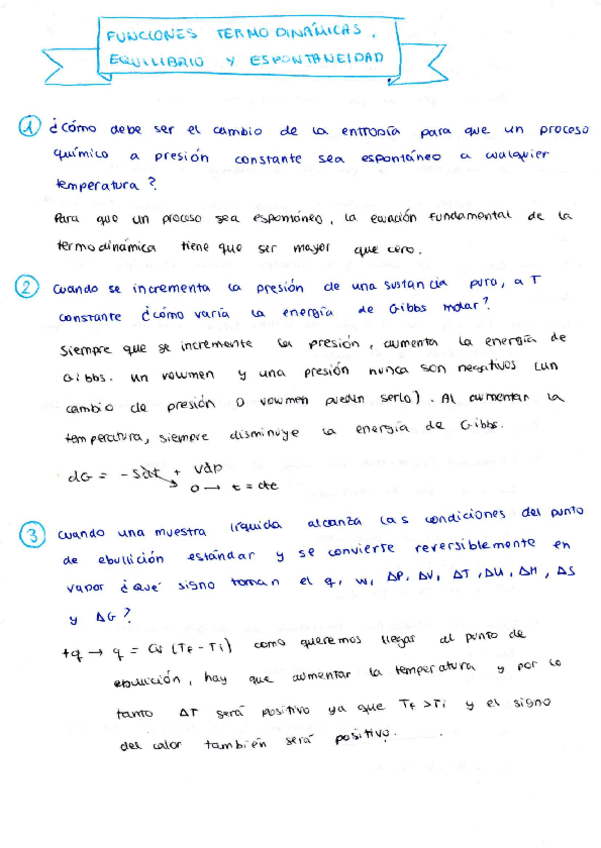 FUNCIONES TERMODINÁMICAS,
EQUILIBRIO Y ESPONTANEIDAD
1 ¿Cómo debe ser el cambio de la entropía para que un proceso
químico a presión constante sea espontáneo a cualquier
temperatura?
Para que un proceso sea espontáneo, la ecuación fundamental de la
termodinámica tiene que ser mayor que cero.
2 Cuando se incrementa la presión de una sustancia pura, a T
constante ¿cómo varía la energía de Gibbs molar?
Siempre que se incremente la presión, aumenta la energía de
Gibbs. Un volumen y una presión nunca son negativos (un
cambio de presión o volumen pueden serlo). Al aumentar la
temperatura, siempre disminuye la energía de Gibbs.
dG = -Sdt + Vdp
0 → t = cte
3 Cuando una muestra líquida alcanza las condiciones del punto
de ebullición estándar y se convierte reversiblemente en
vapor ¿Qué signo toman el q, w, ΔP, ΔV, ΔT, ΔU, ΔH, ΔS
y ΔG?
+q → q = (Tf - Ti) como queremos llegar al punto de
ebullición, hay que aumentar la temperatura y por lo
tanto ΔT será positivo ya que Tf > Ti y el signo
del calor también será positivo.